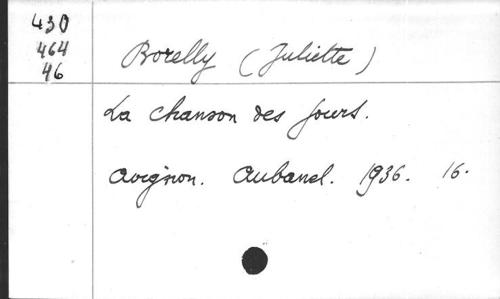 430
464
46
Borelly (Juliette)
La chanson des jours.
Avignon. Aubanel. 1936. 16.